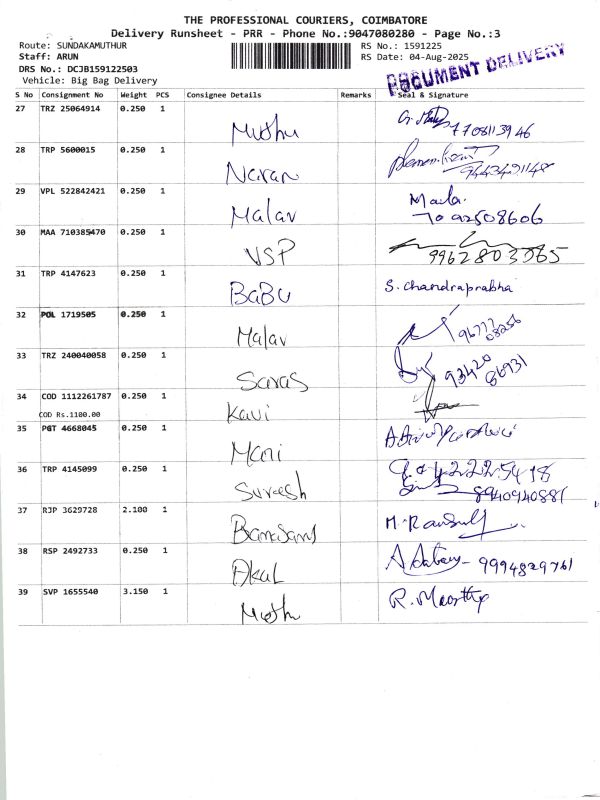 THE PROFESSIONAL COURIERS, COIMBATORE
Delivery Runsheet - PRR - Phone No.:9047080280 - Page No.:3
Route: SUNDAKAMUTHUR RS No.: 1591225
Staff: ARUN RS Date: 04-Aug-2025
DRS No.: DCJB159122503
Vehicle: Big Bag Delivery
DOCUMENT DELIVERY
S No Consignment No Weight PCS Consignee Details Remarks Seal & Signature
27 TRZ 25064914 0.250 1
Muthu 7708113946
28 TRP 5600015 0.250 1
Naran 9443491148
29 VPL 522842421 0.250 1
Malar Mala.
7092508606
30 MAA 710385470 0.250 1
VSP 9962803565
31 TRP 4147623 0.250 1
BaBu S. Chandraprabha
32 POL 1719505 0.250 1
Malar 96777
08256
33 TRZ 240040058 0.250 1
Saras 93420
86931
34 COD 1112261787 0.250 1
COD Rs.1100.00 Kavi
35 PGT 4668045 0.250 1
Mani
36 TRP 4145099 0.250 1
Suresh 8940940881
37 RJP 3629728 2.100 1
38 RSP 2492733 0.250 1
Akul 9994829761
39 SVP 1655540 3.150 1
Muthu R. Moorthy